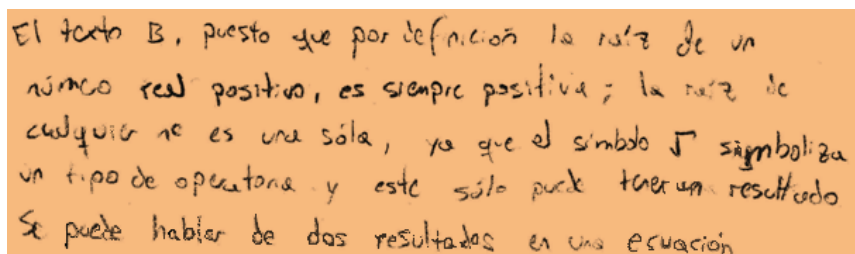 El texto B, puesto que por definición la raíz de un
número real positivo, es siempre positiva; la raíz de
cualquier nº es una sóla, ya que el símbolo √ simboliza
un tipo de operatoria y este sólo puede tener un resultado
Se puede hablar de dos resultados en una ecuación